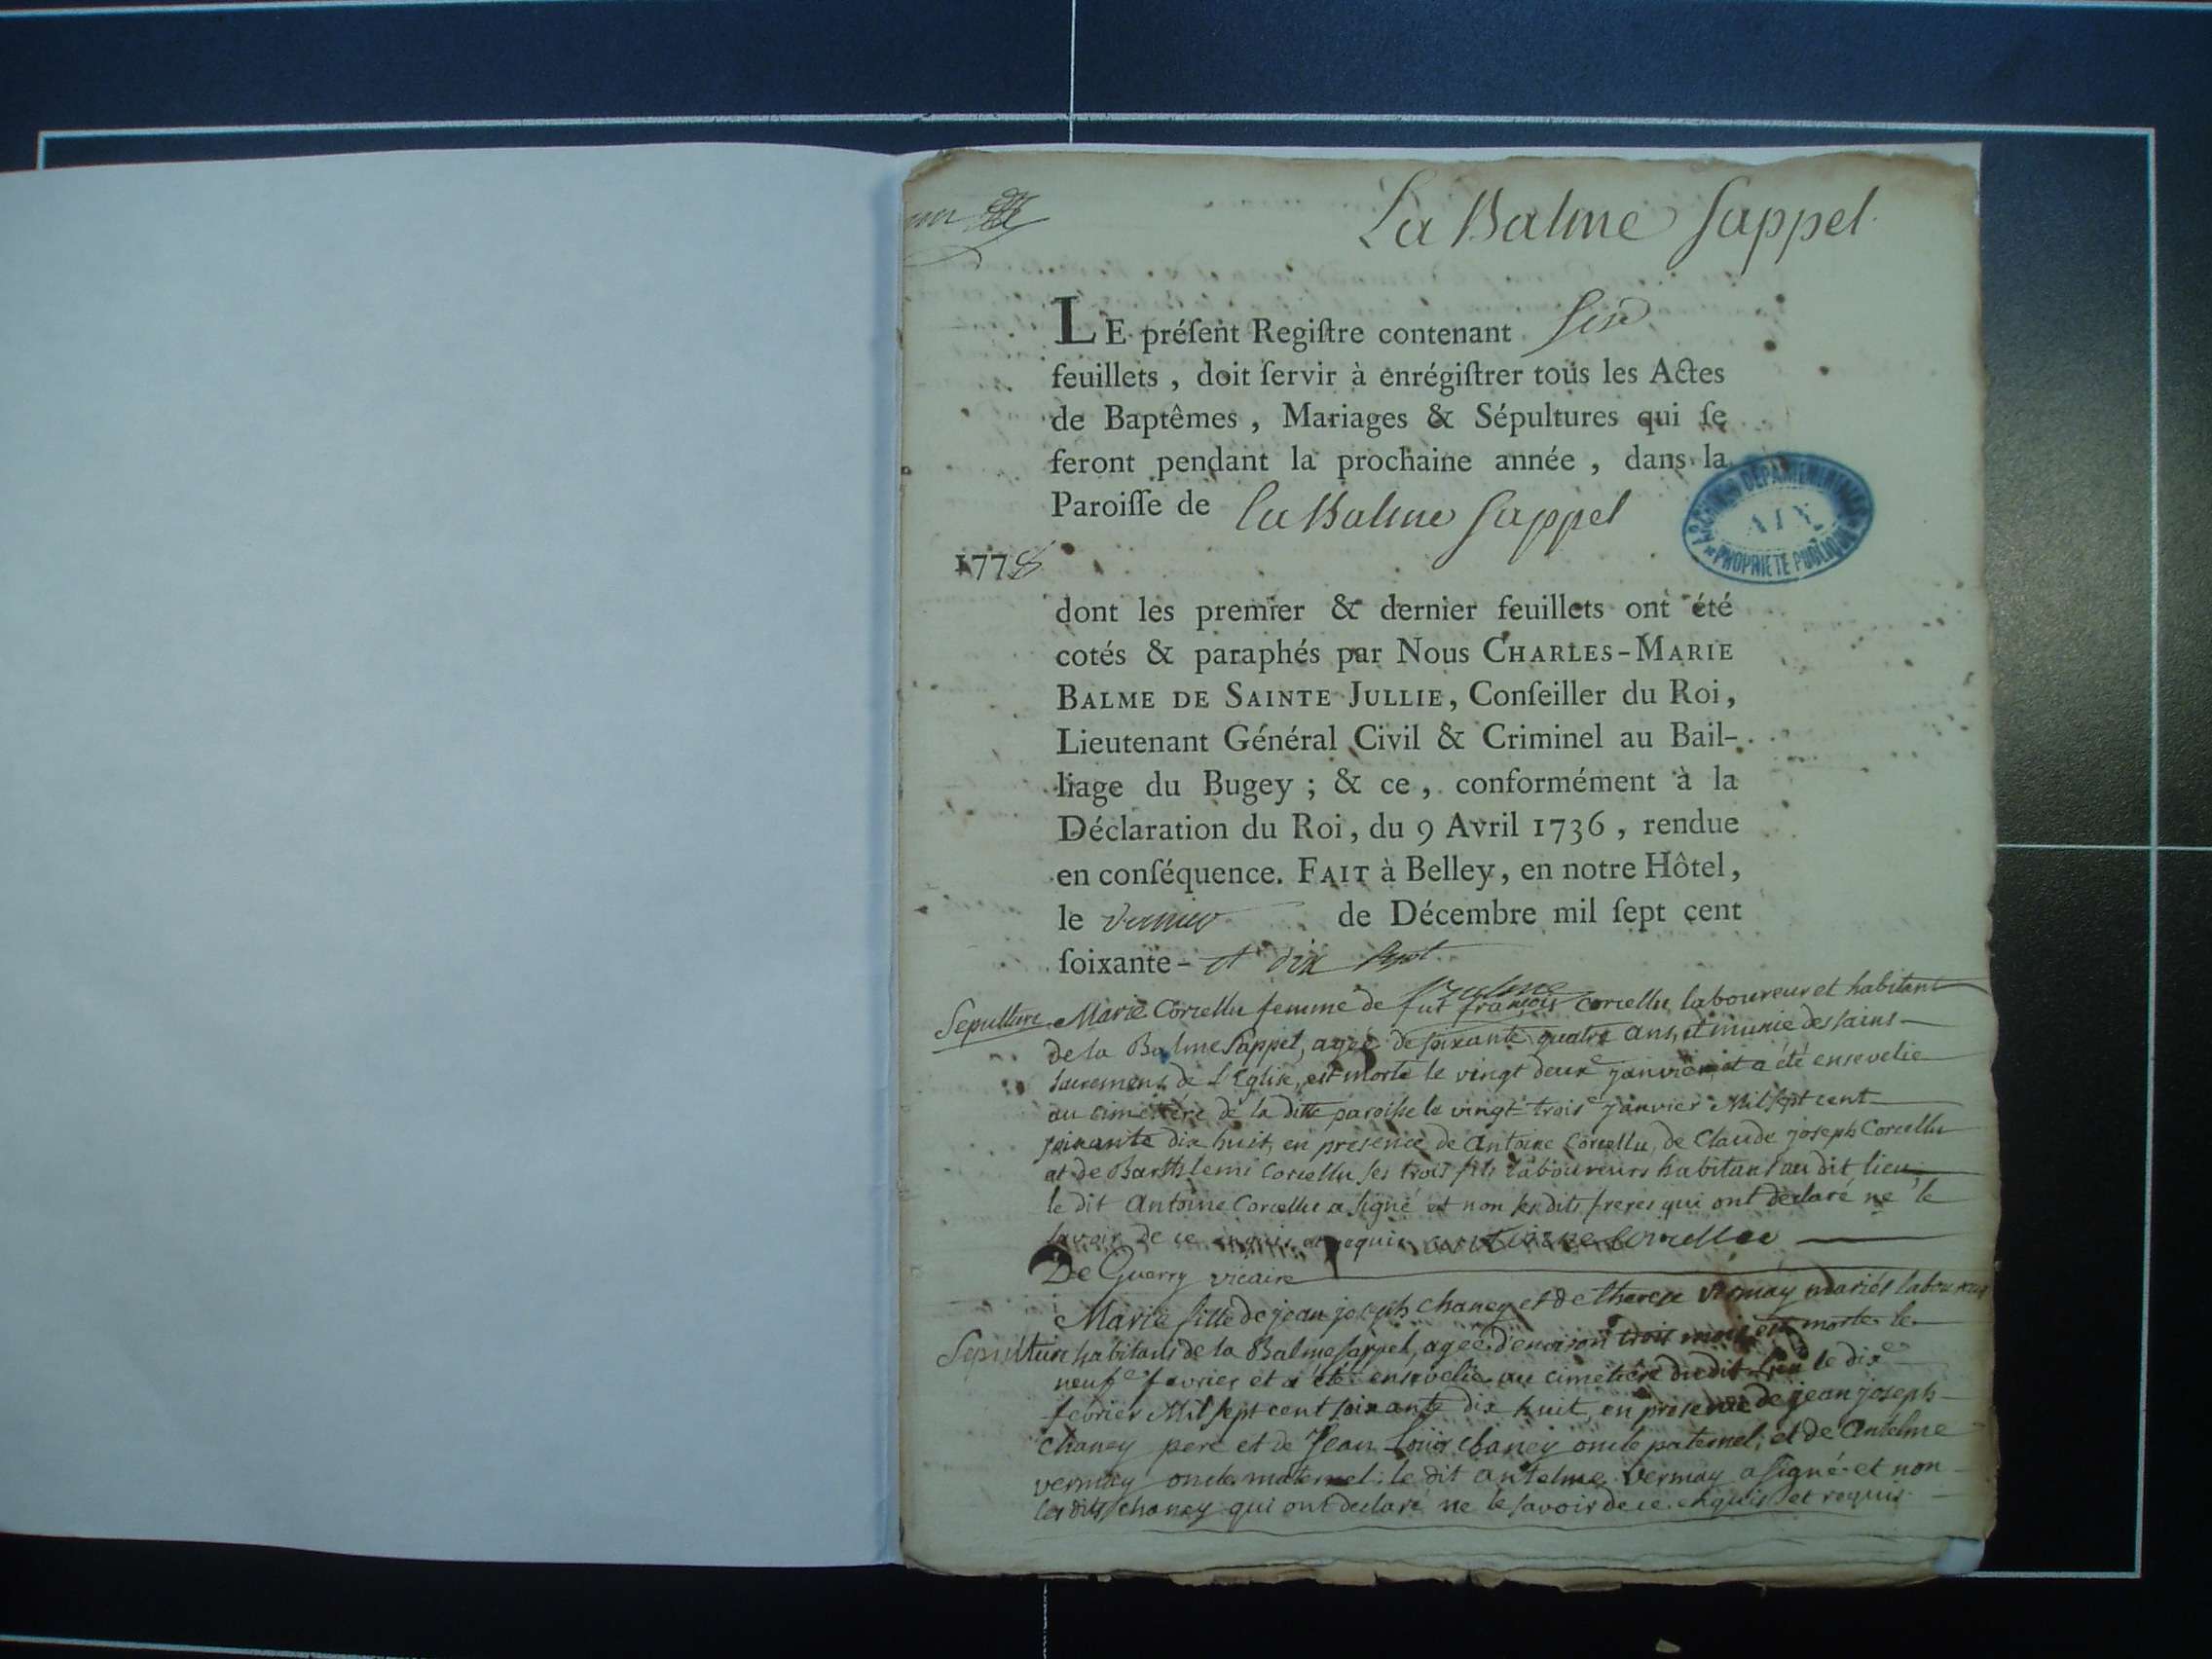 La Balme Sappel
LE préſent Regiſtre contenant Six
feuillets, doit ſervir à enrégiſtrer tous les Actes
de Baptêmes, Mariages & Sépultures qui ſe
feront pendant la prochaine année, dans la
Paroiſſe de La Balme Sappel
ARCHIVES DEPARTEMENTALES
AIN
PROPRIETE PUBLIQUE
1778
dont les premier & dernier feuillets ont été
cotés & paraphés par Nous CHARLES-MARIE
BALME DE SAINTE JULLIE, Conſeiller du Roi,
Lieutenant Général Civil & Criminel au Bail-
liage du Bugey ; & ce, conformément à la
Déclaration du Roi, du 9 Avril 1736, rendue
en conſéquence. FAIT à Belley, en notre Hôtel,
le dernier de Décembre mil ſept cent
ſoixante- et dix Sept
Balme
Sepulture Marie Corcellu femme de fut françois Corcellu laboureur et habitant
de la Balme Sappel, agée de soixante quatre ans, et munie des sains
sacremens de l'Eglise, est morte le vingt deux janvier, et a été ensevelie
au cimetière de la ditte paroisse le vingt trois janvier Mil sept cent
soixante dix huit, en presence de Antoine Corcellu, de Claude joseph Corcellu
et de Barthelemi Corcellu ses trois fils laboureurs habitans au dit lieu
le dit Antoine Corcellu a signé et non ses dits freres qui ont declaré ne le
savoir de ce enquis et requis
De Guerry vicaire
Marie fille de jean joseph chaney et de therese vermay mariés laboureurs
Sepulture habitans de la Balme Sappel, agée d'environ trois mois est morte le
neuf fevrier et a été ensevelie au cimetière du dit lieu le dix
fevrier Mil sept cent soixante dix huit, en presence de jean joseph
chaney pere et de Jean Louis chaney oncle paternel, et de Antelme
vermay oncle maternel: le dit antelme vermay a signé et non
les dits chaney qui ont declaré ne le savoir de ce enquis et requis